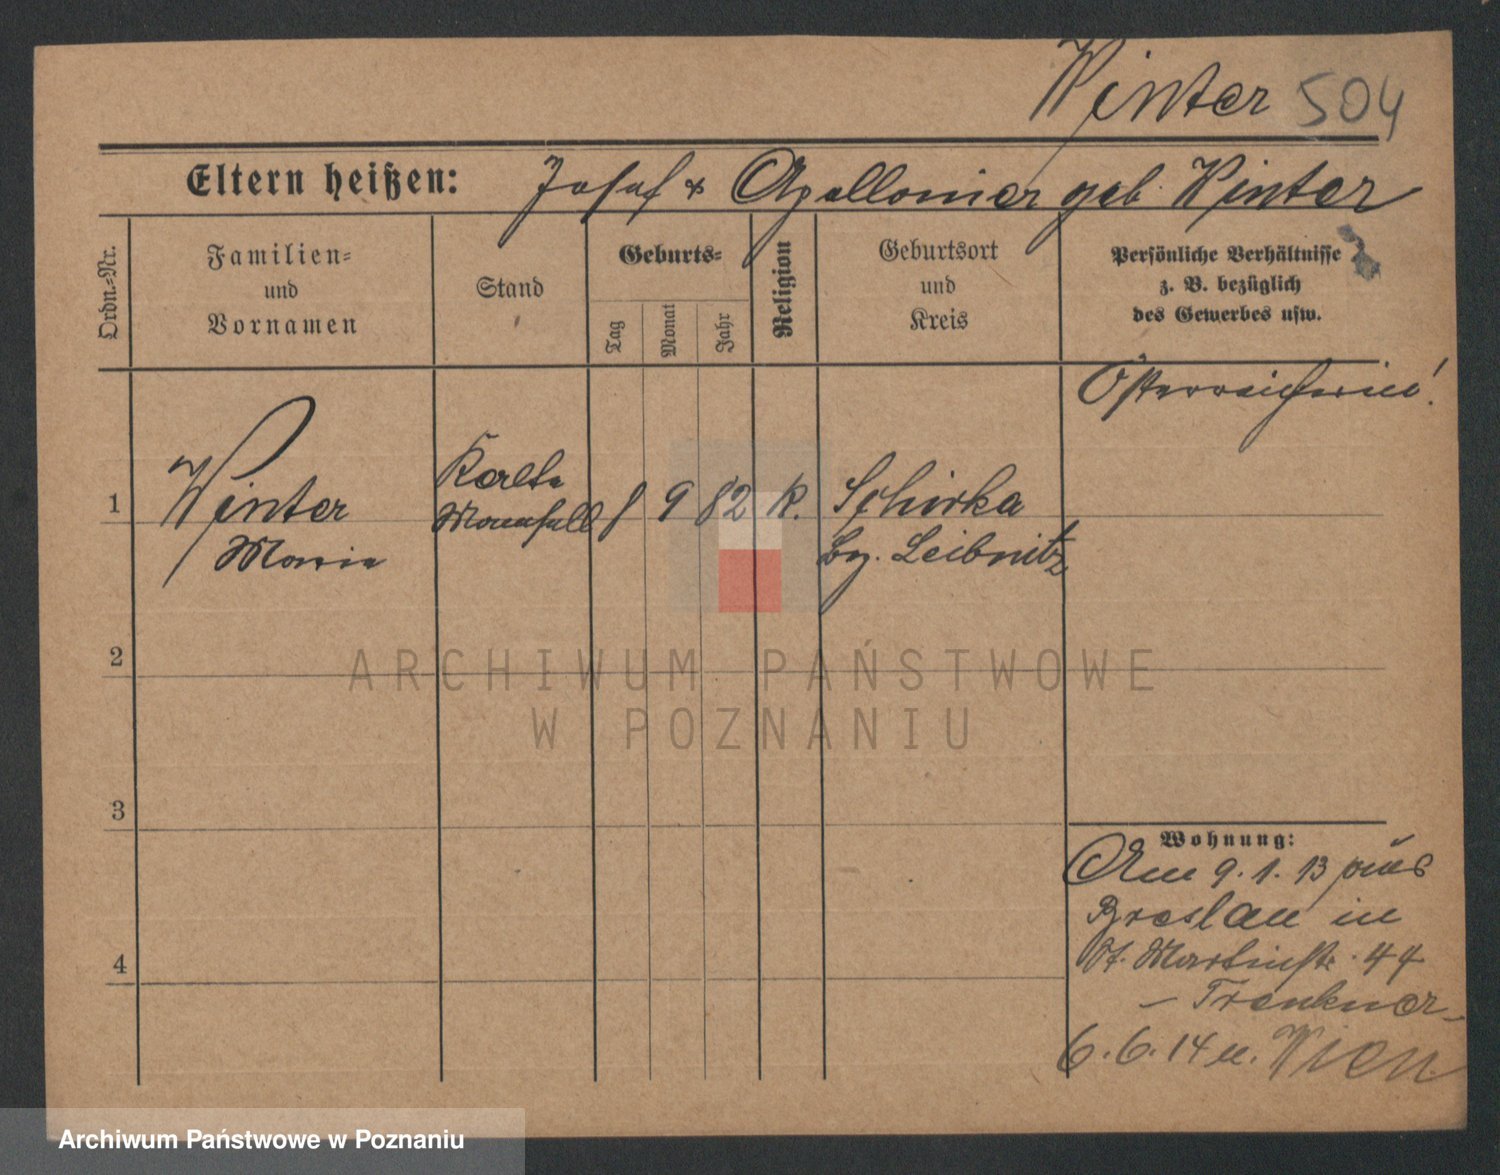 Winter 504
Eltern heißen: Josef & Apollonier geb. Winter
Ordn.-Nr.
Familien-
und
Vornamen
Stand
Geburts-
Tag
Monat
Jahr
Religion
Geburtsort
und
Kreis
Persönliche Verhältnisse
z. B. bezüglich
des Gewerbes usw.
Österreicherin!
1
Winter
Marie
Kalte
Mamsell
8 9 82 K.
Schirka
Bz. Leibnitz
2
3
4
Wohnung:
Am 9. 1. 13 aus
Breslau in
St. Martinstr. 44
- Trenkner -
6. 6. 14 n. Wien
ARCHIWUM PAŃSTWOWE
W POZNANIU
Archiwum Państwowe w Poznaniu